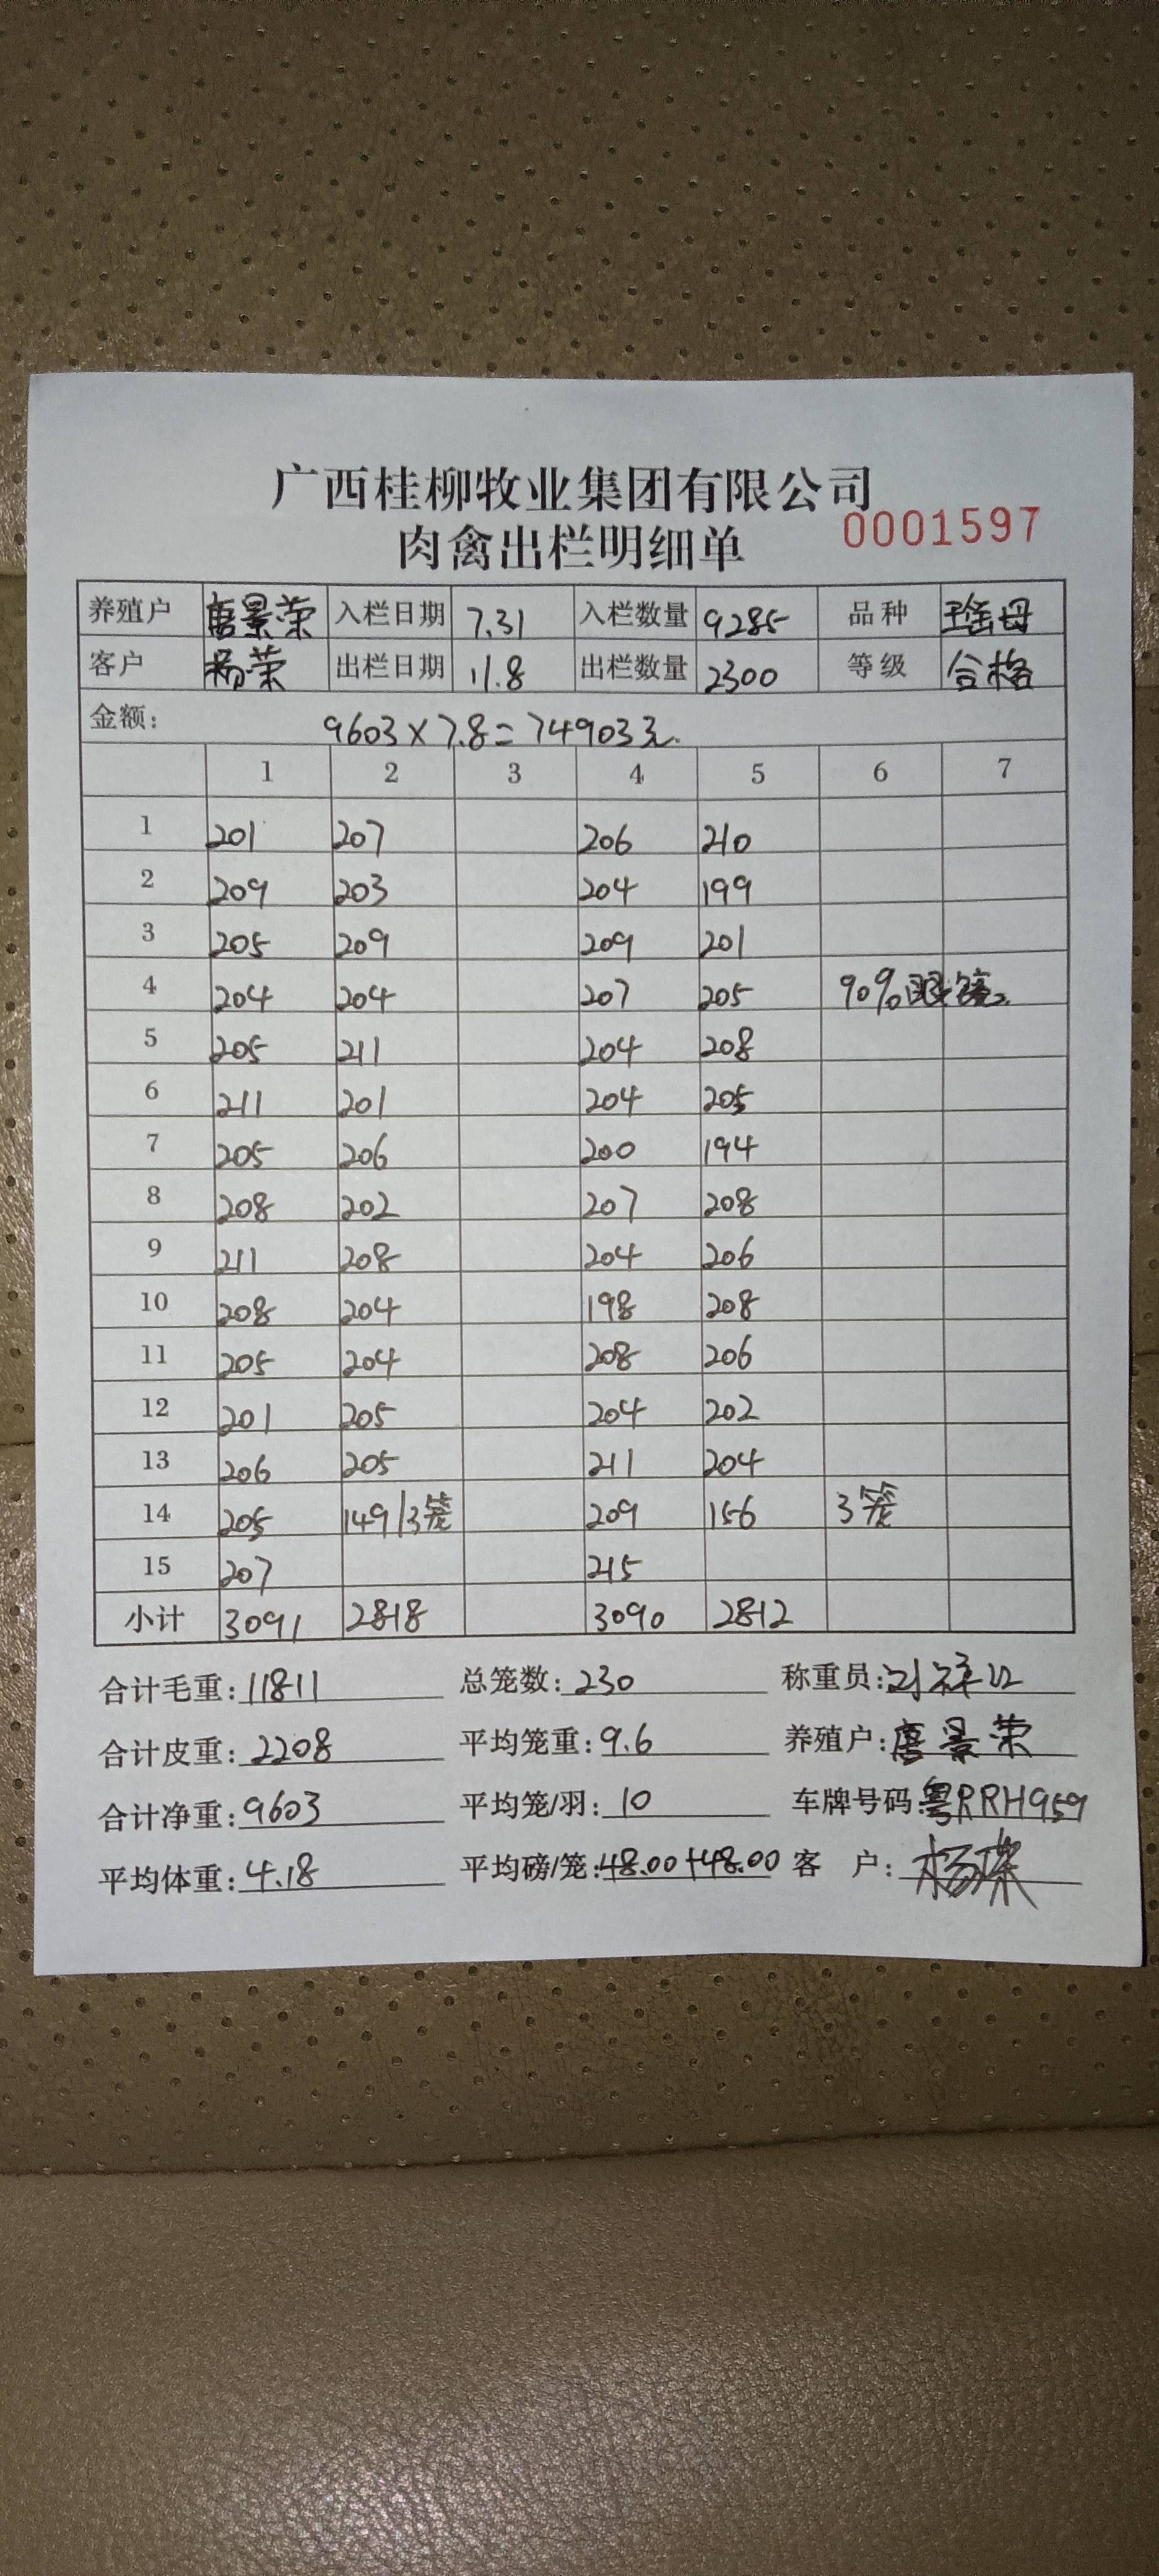 广西桂柳牧业集团有限公司
肉禽出栏明细单 0001597
养殖户 唐景荣 入栏日期 7.31 入栏数量 9285 品种 瑶母
客户 杨荣 出栏日期 11.8 出栏数量 2300 等级 合格
金额: 9603×7.8=74903元.
1 2 3 4 5 6 7
1 201 207 206 210
2 209 203 204 199
3 205 209 209 201
4 204 204 207 205 90%眼镜
5 205 211 204 208
6 211 201 204 205
7 205 206 200 194
8 208 202 207 208
9 211 208 204 206
10 208 204 198 208
11 205 204 208 206
12 201 205 204 202
13 206 205 211 204
14 205 149/3笼 209 156 3笼
15 207 215
小计 3091 2818 3090 2812
合计毛重:11811 总笼数:230 称重员:
合计皮重:2208 平均笼重:9.6 养殖户:唐景荣
合计净重:9603 平均笼/羽:10 车牌号码:粤RRH959
平均体重:4.18 平均磅/笼:48.00+48.00 客 户:杨荣